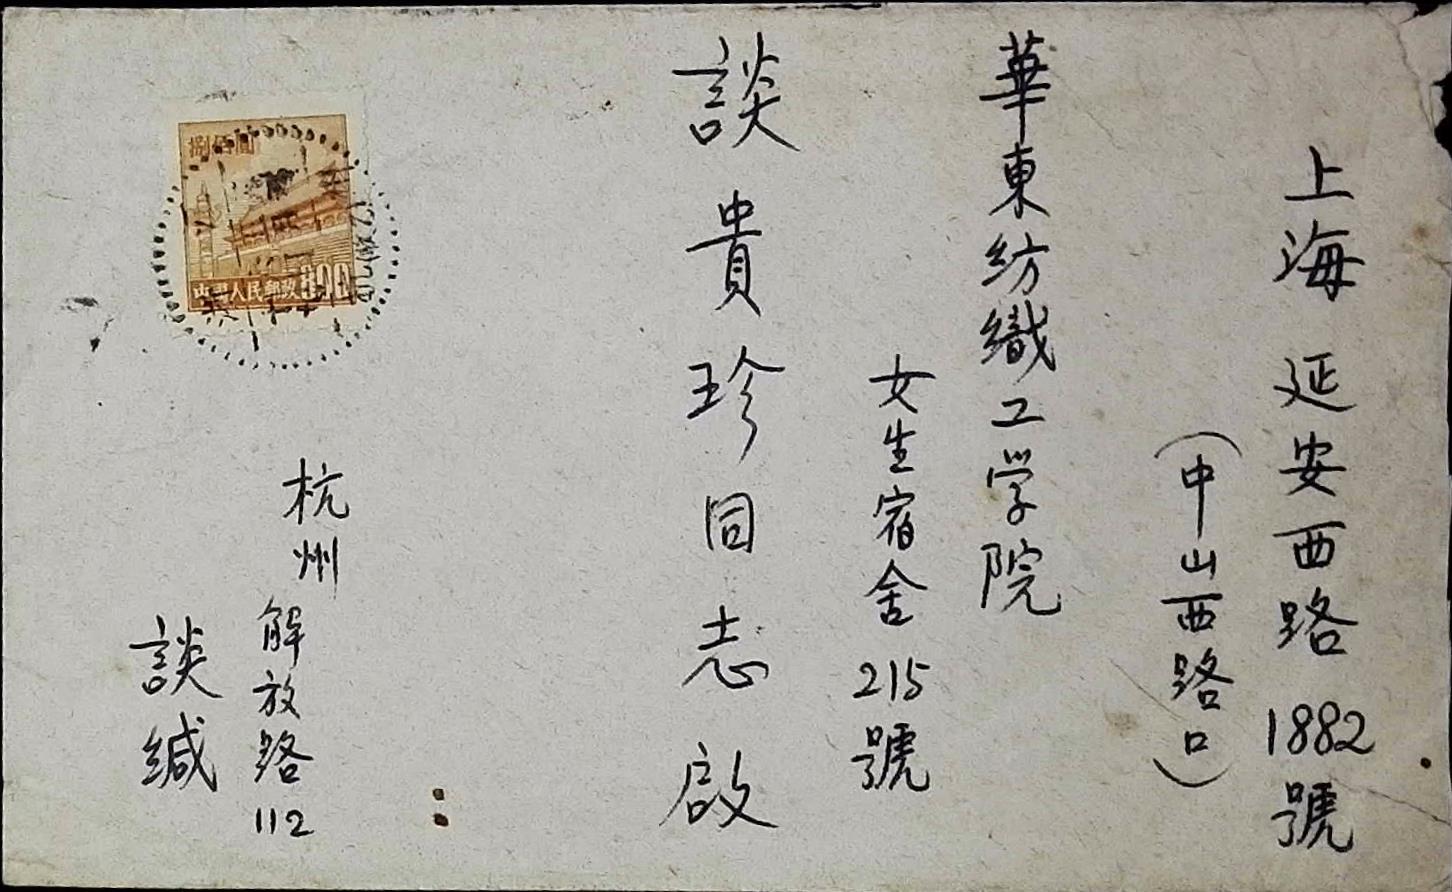 上海 延安西路 1882 號
(中山西路口)
華東紡織工学院
女生宿舍 215 號
談貴珍同志啟
杭州
解放路 112
談緘
捌佰圓
中國人民郵政 800